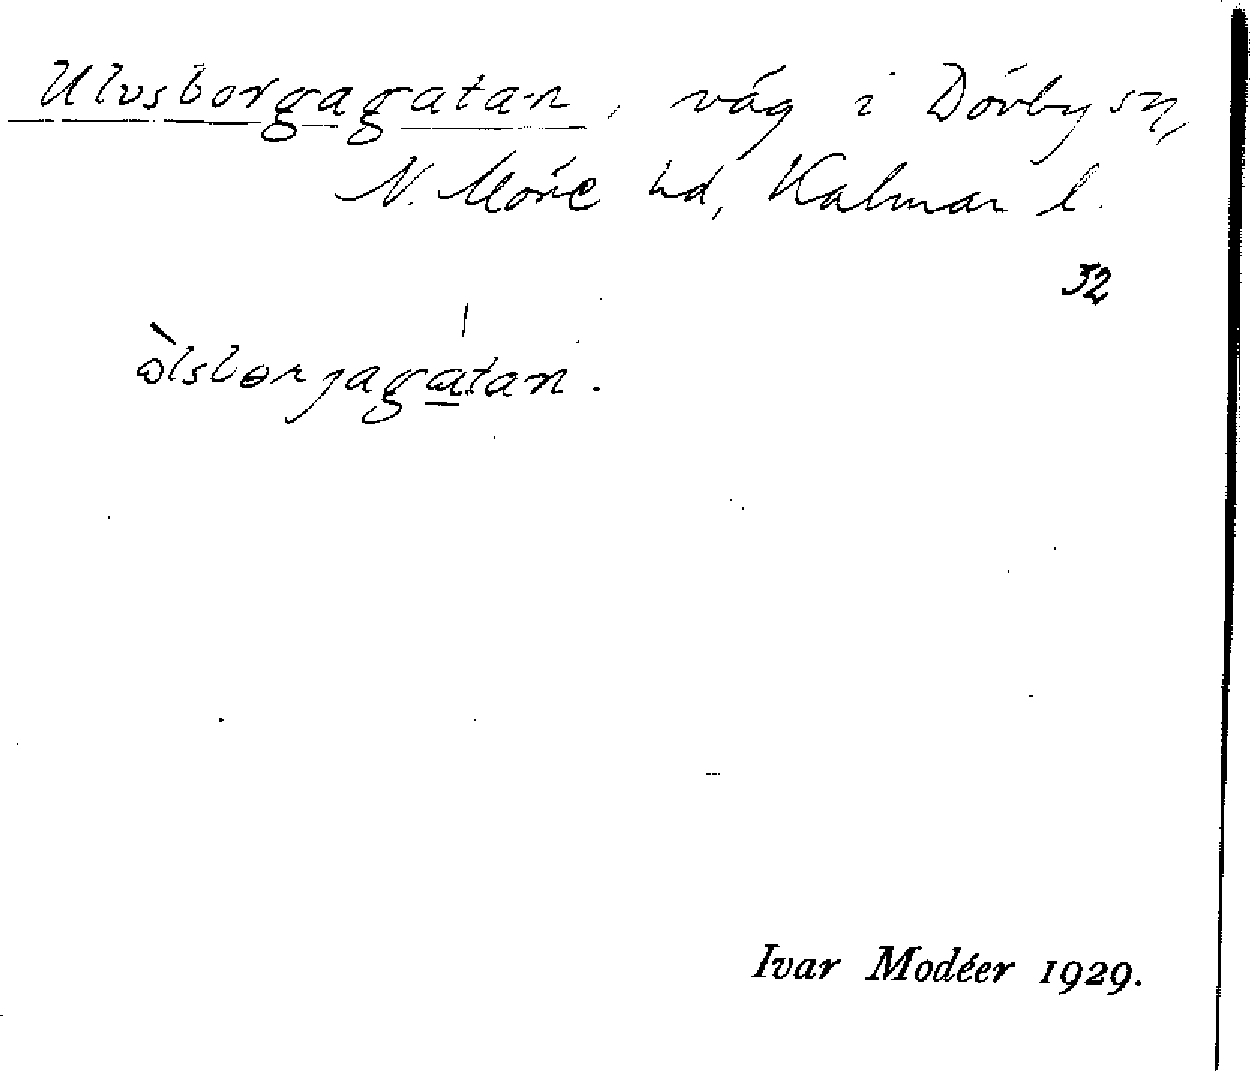 Ulvsborgagatan, väg i Dörby sn,
N. Möre hd, Kalmar l.
52
òlsborjagatan.
Ivar Modéer 1929.